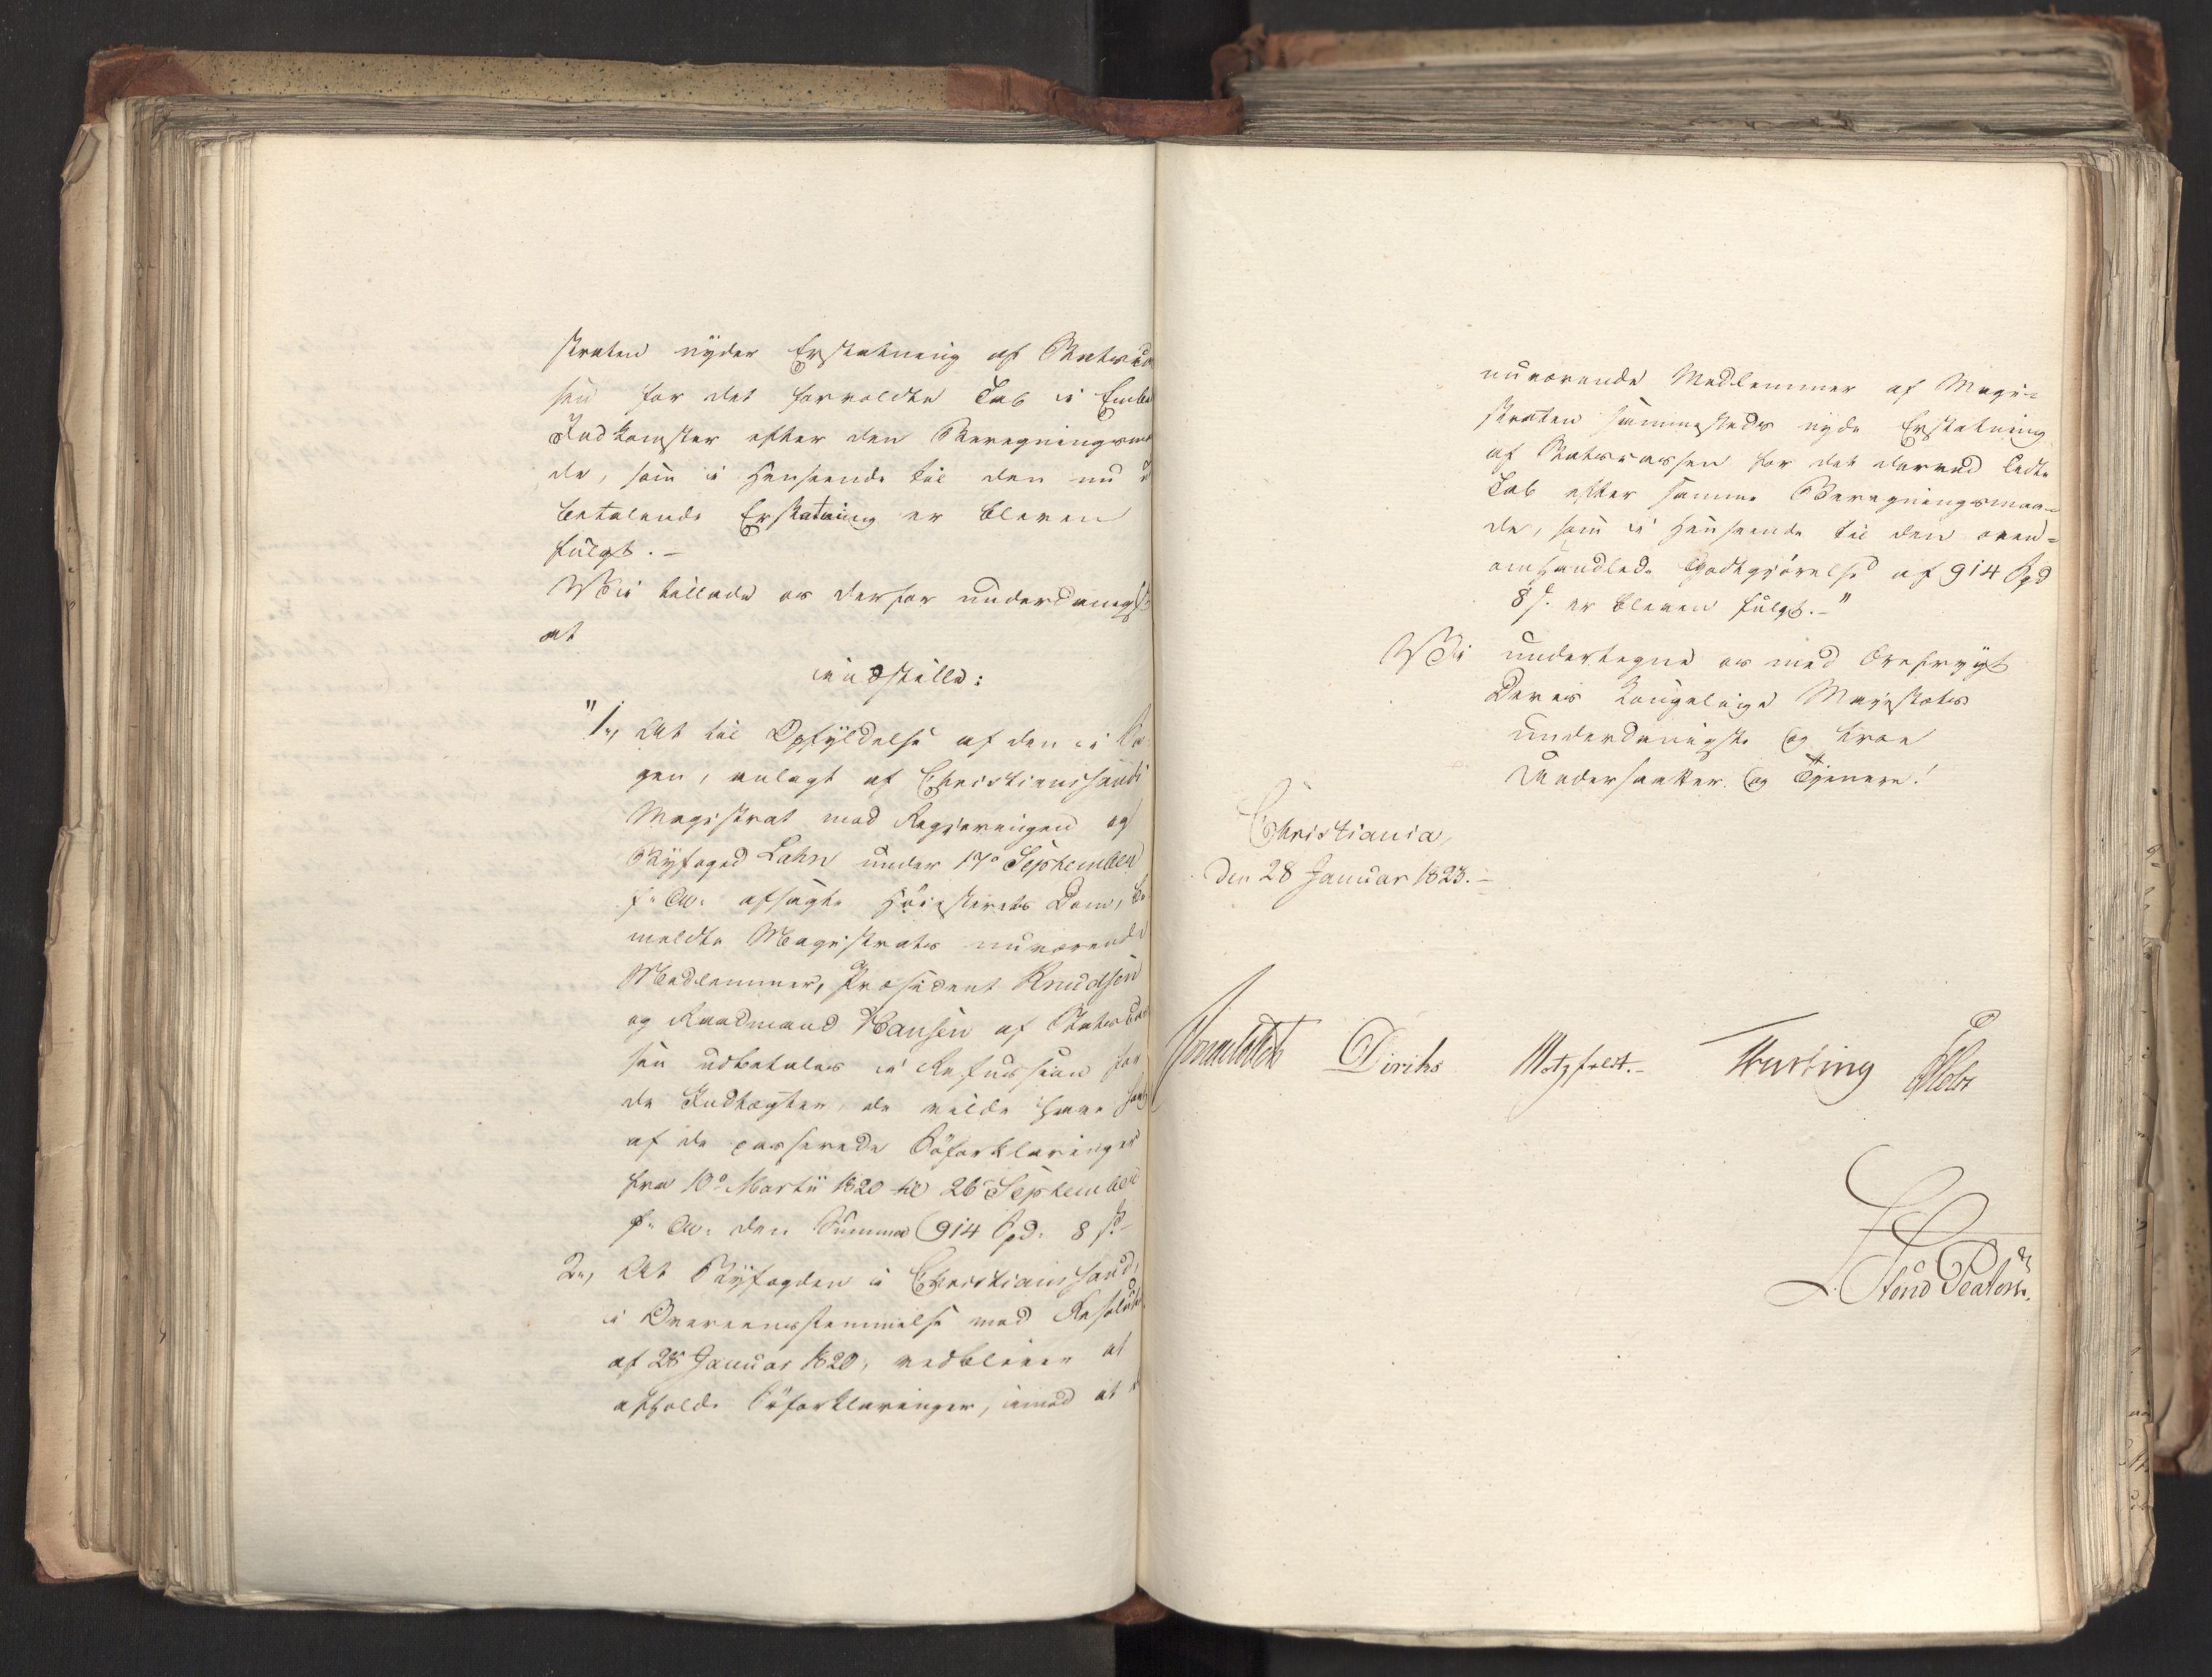 straten nyder Erstatning af Statscas
sen for det forvoldte Tab i Embe
Indkomster efter den Beregningsmaa
de, som i Henseende til den nu u
betalende Erstatning er bleven
fulgt. –
Vi tillade os derfor underdanigst
at
indstille:
"1., At til Opfyldelse af den i Sa
gen, anlagt af Christianssands
Magistrat mod Regjeringen og
Byfoged Lahn under 17de September
f. A. afsagte Høiesterets Dom, be
meldte Magistrats nuværende
Medlemmer, Præsident Knudsen
og Raadmand Hansen af Statscas
sen udbetales i Refussion for
de Indtægter, de vilde have havt
af de passerede Søforklaringer
fra 10de Martii 1820 til 26de September
f. A. den Summa 914 Spd. 8 s.
2., At Byfogden i Christianssand,
i Overeensstemmelse med Resolut
af 28 Januar 1820, vedbliver at
afholde Søforklaringer, imod at
nuværende Medlemmer af Magi=
straten sammesteds nyde Erstatning
af Statscassen for det derved lidte
Tab efter samme Beregningsmaa=
de, som i Henseende til den oven=
omhandlede Godtgjørelse af 914 Spd
8 s. er bleven fulgt. –"
Vi undertegne os med Ærefrygt
Deres Kongelige Majestæts
underdanigste og troe
Undersaatter og Tjenere!
Christiania,
den 28 Januar 1823. –
Sommerhielm Diriks Motzfeldt. – Treschow